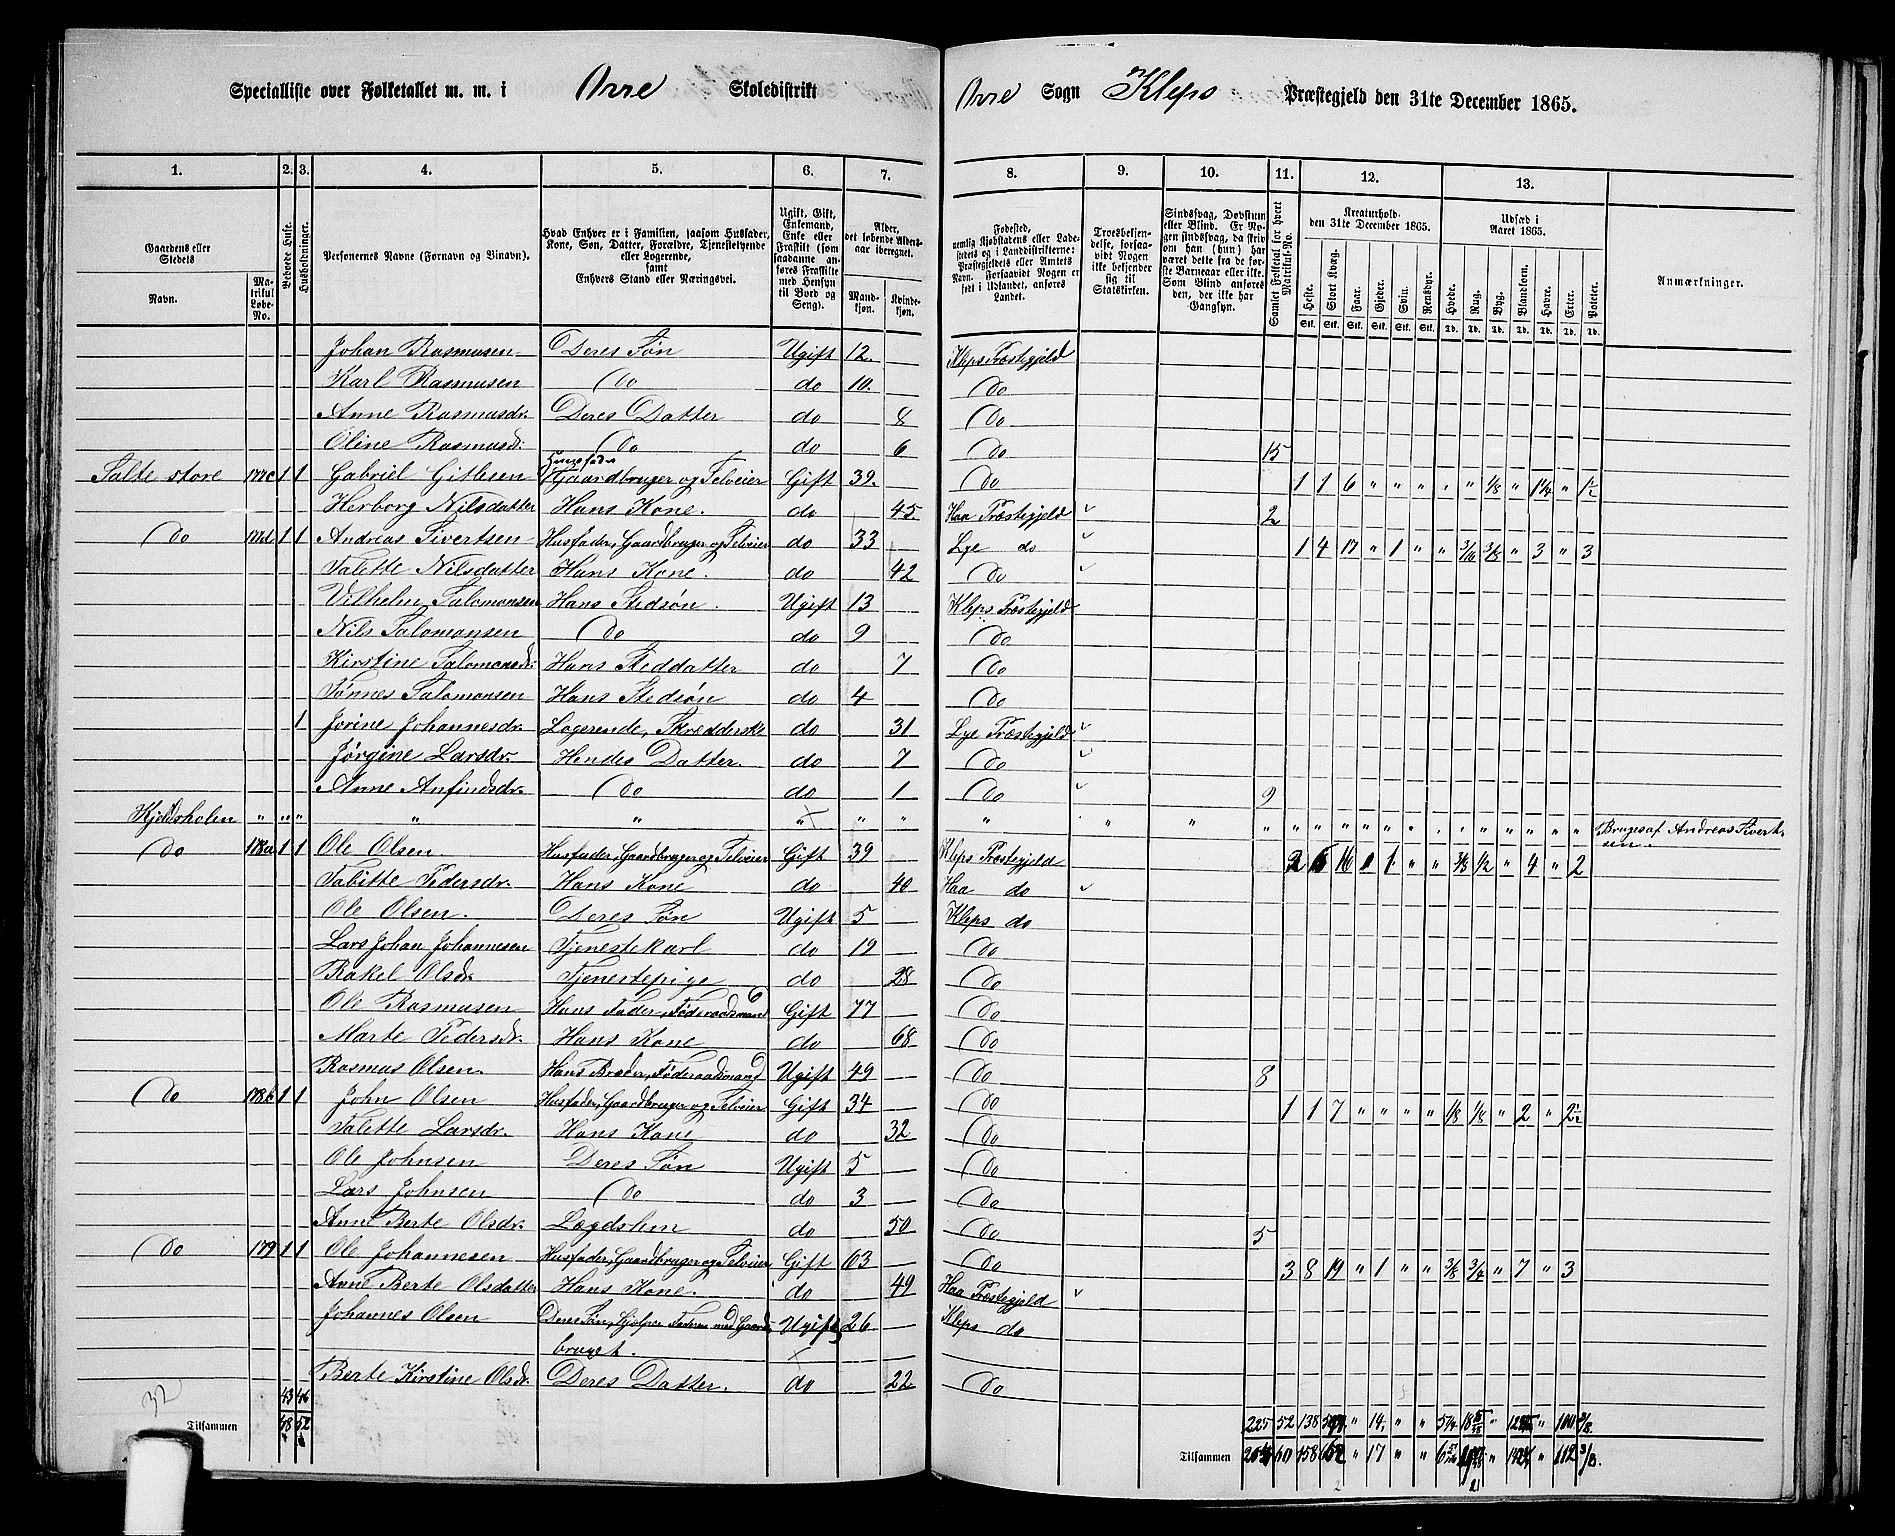 Specialliste over Folketallet m. m. i Orre Skoledistrikt Orre Sogn Kleps Præstegjeld den 31te December 1865.
1. 2. 3. 4. 5. 6. 7. 8. 9. 10. 11. 12. 13.
Gaardens eller Stedets Navn. Matrikul Løbe-No. Beboede Huse. Husholdninger. Personernes Navne (Fornavn og Binavn). Hvad Enhver er i Familien, saasom Husfader, Kone, Søn, Datter, Forældre, Tjenestetyende eller Logerende, samt Enhvers Stand eller Næringsvei. Ugift, Gift, Enkemand, Enke eller Fraskilt (som saadanne anføres Fraskilte med Hensyn til Bord og Seng). Alder, det løbende Aldersaar iberegnet. Mandkjøn. Kvindekjøn.
Fødested, nemlig Kjøbstadens eller Ladestedets og i Landdistrikterne: Præstegjeldets eller Amtets Navn. Forsaavidt Nogen er født i Udlandet, anføres Landet. Troesbekjendelse, forsaavidt Nogen ikke bekjender sig til Statskirken. Sindssvag, Døvstum eller Blind. Er Nogen sindssvag, da skrives om han (hun) har været dette fra de første Barneaar eller ikke. Som Blind anføres den, der ikke har Gangsyn. Samlet Folketal for hvert Matrikul-No. Kreaturhold den 31te December 1865. Heste. Stort Kvæg. Faar. Gjeder. Svin. Rensdyr. Udsæd i Aaret 1865. Hvede. Rug. Byg. Blandkorn. Havre. Erter. Poteter. Anmærkninger.
Johan Rasmusen Deres Søn Ugift 12. Kleps Præstegjeld
Karl Rasmusen Do do 10. Do
Anne Rasmusdr. Deres Datter do 8 Do
Oline Rasmusd. Do do 6 Do 15
Salte store 177c 1 1 Gabriel Gitlesen Husfader Gaardbruger og Selveier Gift 39. Do 1 1 6 " " " " " 1/8 " 1 1/4 " 1 1/2
Herborg Nilsdatter Hans Kone. do 45. Haa Præstegjeld 2
Do 177d 1 1 Andreas Sivertsen Husfader, Gaardbruger og Selveier do 33 Lye do 1 4 17 " 1 " " 3/16 3/8 " 3 " 3
Talette Nilsdatter Hans Kone. do 42 Do
Vilhelm Salomonsen Hans Stedsøn. Ugift 13 Kleps Præstegjeld
Nils Salomonsen Do do 9 Do
Kirstine Salomonsd. Hans Steddatter do 7 Do
Tønnes Salomonsen Hans Stedsøn do 4 Do
1 Jorine Johannesdr. Logerende, Skrædderske do 31 Lye Præstegjeld
Jørgine Larsdr. Hendes Datter. do 7 Do
Anne Anfindsdr. Do do 1 Do 9
Kjeldsholen " " " " " " " " " " " " Bruges af Andreas Sivertsen.
Do 178a 1 1 Ole Olsen Husfader, Gaardbruger og Selveier Gift 39 Kleps Præstegjeld 2 16 1 " " 3/8 1/2 " 4 " 2
Tabitte Pedersdr. Hans Kone do 40 Haa do
Ole Olsen. Deres Søn Ugift 5 Kleps do
Lars Johan Johannesen Tjenestekarl do 19 Do
Rakel Olsdr. Tjenestepige do 28 Do
Ole Rasmusen Hans Fader, Føderaadsmand Gift 77 Do
Marte Pedersdr. Hans Kone do 68 Do
Rasmus Olsen. Hans Broder, Føderaadsmand Ugift 49 Do 8
Do 178b 1 1 John Olsen Husfader, Gaardbruger og Selveier Gift 34 Do 1 1 7 " " " " 1/8 1/8 " 2 " 2 1/2
Talette Larsdr. Hans Kone do 32 Do
Ole Johnsen Deres Søn Ugift 5 Do
Lars Johnsen Do do 3 Do
Anne Berte Olsdr. Lægdslem do 50 Do 5
Do 179 1 1 Ole Johannesen Husfader, Gaardbruger og Selveier Gift 63 Do 3 8 19 " 1 " " 3/8 3/4 " 7 " 3
Anne Berte Olsdatter Hans Kone. do 49 Haa Præstegjeld
Johannes Olsen Deres Søn, hjelper Faderen med Gaards- Ugift 26 Kleps do
bruget.
Berte Kirstine Olsdr. Deres Datter. do 22 Do
32 43 46 225 52 138 " 14 " "
Tilsammen 48 52 Tilsammen 60 158 " 17 " "